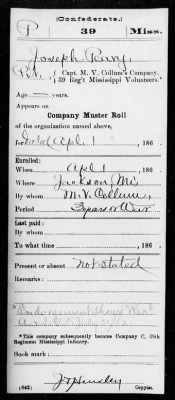 (Confederate.)
P 39 Miss.
Joseph
Pvt., Capt. M. V. Collum's Company,
39 Reg't Mississippi Volunteers.*
Age years.
Appears on
Company Muster Roll
of the organization named above,
for dated Apl 1, 186 .
Enrolled:
When Apl 1, 186 .
Where Jackson, Mi
By whom M. V. Collum
Period 3 years or War
Last paid:
By whom
To what time , 186 .
Present or absent Not Stated
Remarks:
*This company subsequently became Company C, 39th
Regiment Mississippi Infantry.
Book mark:
(642) Copyist.